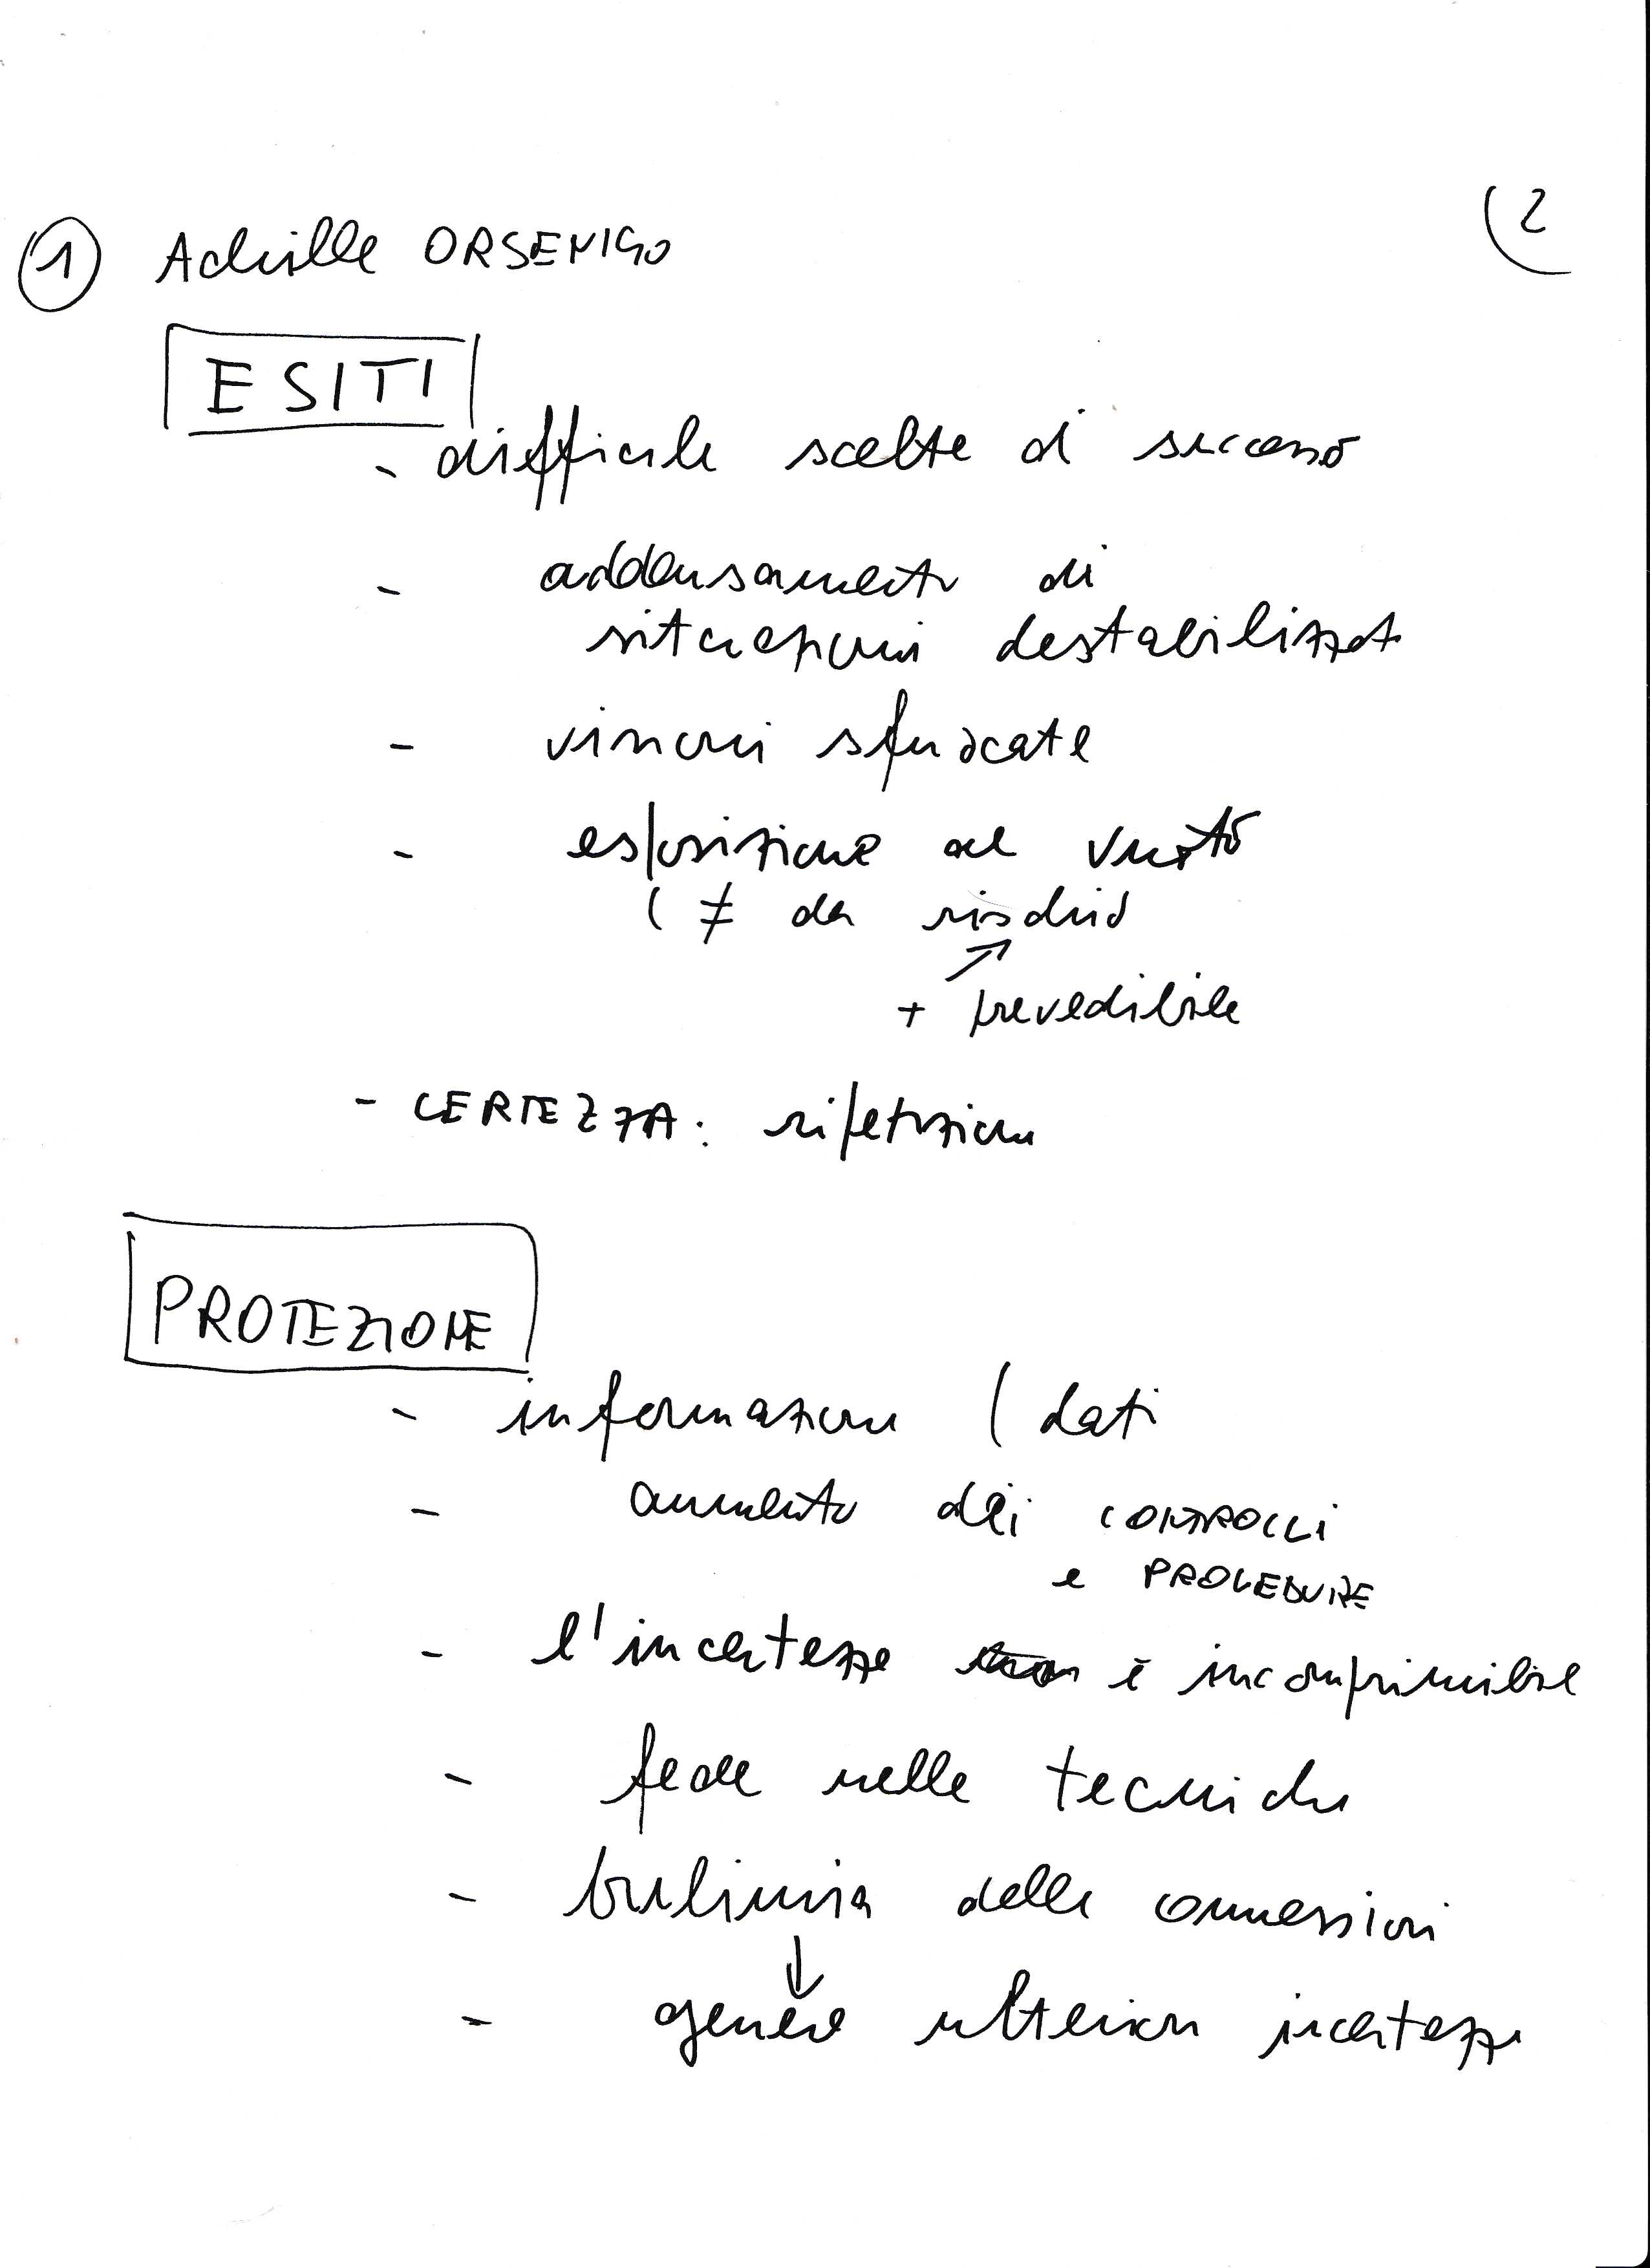 2
1 Achille ORSENIGO
ESITI
- difficile scelte di successo
- addensamento di
situazioni destabilizzat
- visioni sfuocate
- esposizione al vuoto
( ≠ da rischio
+ prevedibile
- CERTEZZA: ripetizione
PROTEZIONE
- informazioni ( dati
- aumento dei CONTROLLI
e PROCEDURE
- l'incertezza è incomprimibile
- fede nelle tecniche
- bulimia delle connessioni
↓
- genera ulteriori incertezze